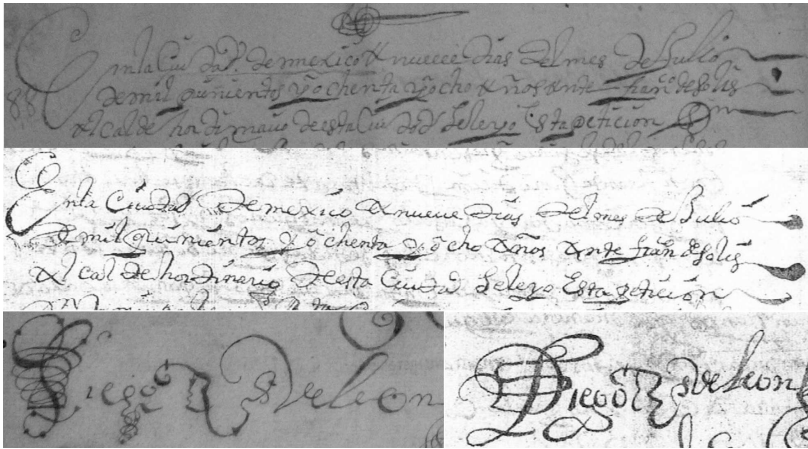 En la Ciudad de mexico A nueve dias del mes de Jullio
de mil quinientos y ochenta y ocho Años Ante fran.co de solis
Alcalde hordinario de esta Ciudad se leyo Esta peticion
En la Ciudad de mexico A nueve dias del mes de Jullio
de mil quinientos y ochenta y ocho Años Ante fran.co de solis
Alcalde hordinario de esta Ciudad se leyo Esta peticion
Diego de leon
Diego de leon